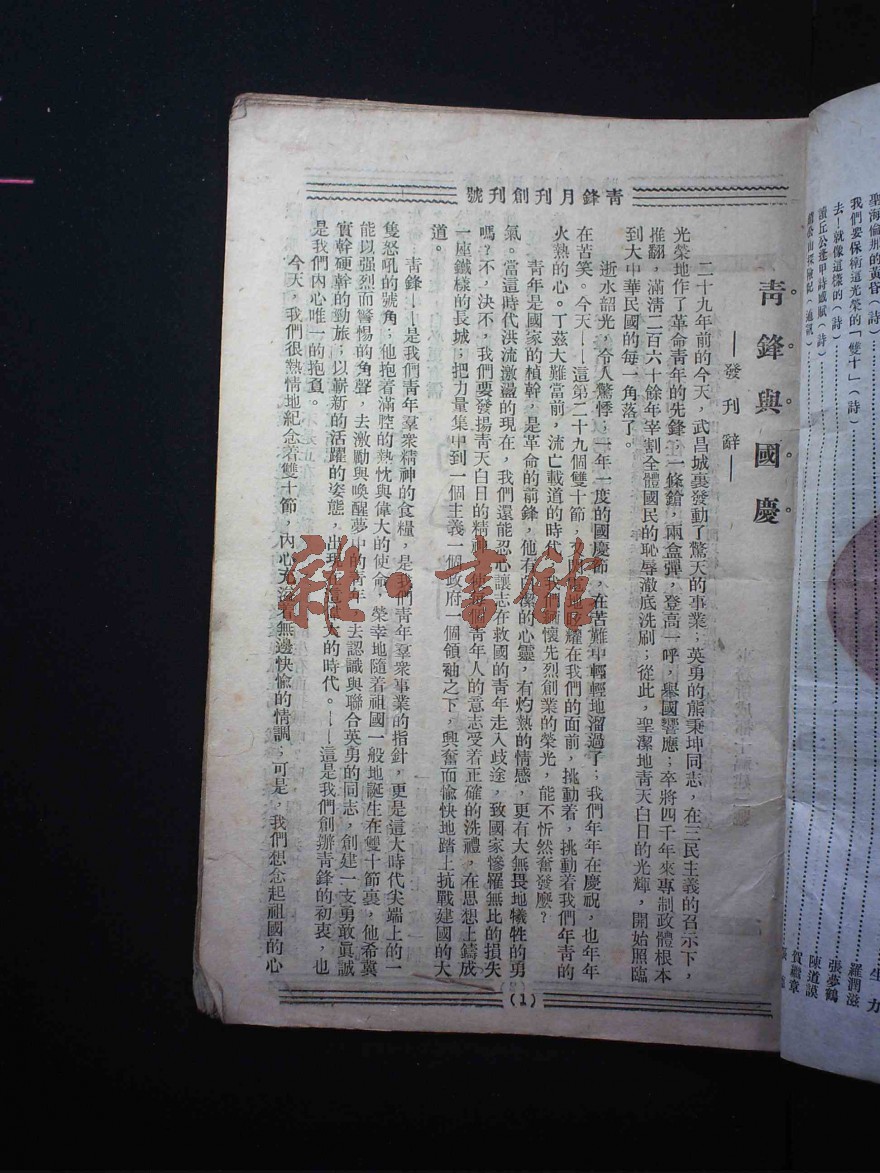 青鋒月刊創刊號
青鋒與國慶
——發刊辭——
二十九年前的今天，武昌城裏發動了驚天的事業；英勇的熊秉坤同志，在三民主義的召示下，
光榮地作了革命青年的先鋒；一條鎗，兩盒彈，登高一呼，舉國響應；卒將四千年來專制政體根本
推翻，滿清二百六十餘年宰割全體國民的恥辱澈底洗刷；從此，聖潔地青天白日的光輝，開始照臨
到大中華民國的每一角落了。
逝水韶光，令人驚悸；一年一度的國慶節，在苦難中輕輕地溜過了；我們年年在慶祝，也年年
在苦笑。今天——這第二十九個雙十節，又 地照耀在我們的面前，挑動着，挑動着我們年青的
火熱的心。丁茲大難當前，流亡載道的時代，我們 懷先烈創業的榮光，能不忻然奮發麼？
青年是國家的楨幹，是革命的前鋒，他有 潔的心靈，有灼熱的情感，更有大無畏地犧牲的勇
氣。當這時代洪流激盪的現在，我們還能忍心讓志在救國的青年走入歧途，致國家慘罹無比的損失
嗎？不，決不，我們要發揚青天白日的精神， 個青年人的意志受着正確的洗禮，在思想上鑄成
一座鐵樣的長城；把力量集中到一個主義一個政府一個領袖之下，興奮而愉快地踏上抗戰建國的大
道。
青鋒——是我們青年羣衆精神的食糧，是我們青年羣衆事業的指針，更是這大時代尖端上的一
隻怒吼的號角；他抱着滿腔的熱忱與偉大的使命，榮幸地隨着祖國一般地誕生在雙十節裏，他希冀
能以强烈而警惕的角聲，去激勵與喚醒夢中的青年，去認識與聯合英勇的同志，創建一支勇敢眞誠
實幹硬幹的勁旅；以嶄新的活躍的姿態，出現在這偉大的時代。——這是我們創辦青鋒的初衷，也
是我們內心唯一的抱負。
今天，我們很熱情地紀念着雙十節，內心充溢着無邊快愉的情調；可是，我們想念起祖國的心
（1）
雜·書館
聖海倫那的黃昏（詩）
我們要保衛這光榮的「雙十」（詩）
去——就像這樣的（詩）
讀丘公逢甲詩感賦（詩）
生力
羅潤滋
張夢鶴
陳道謨
賀繼章